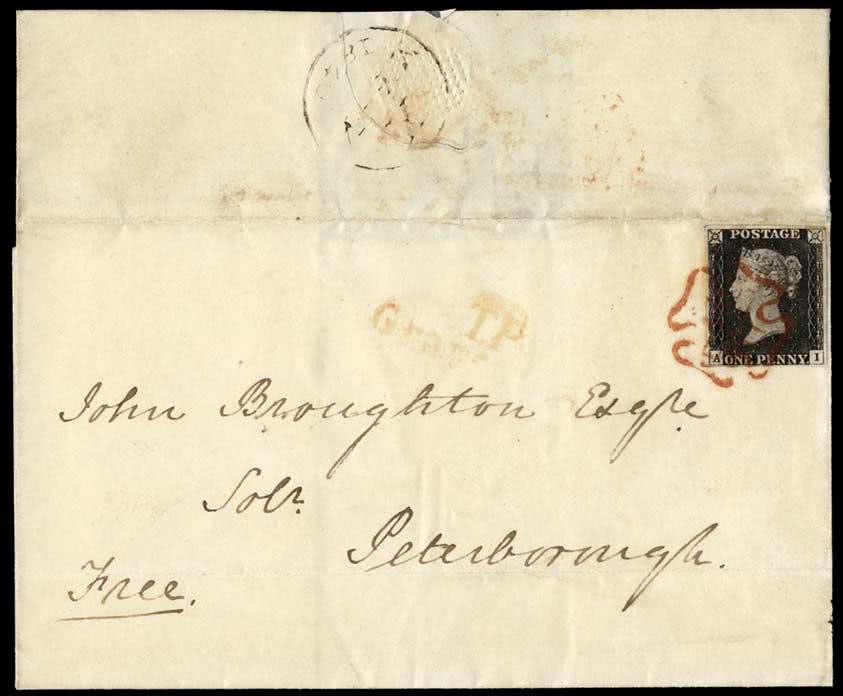 POSTAGE
A ONE PENNY I
TP
John Broughton Esqre.
Solr.
Peterborough.
Free.